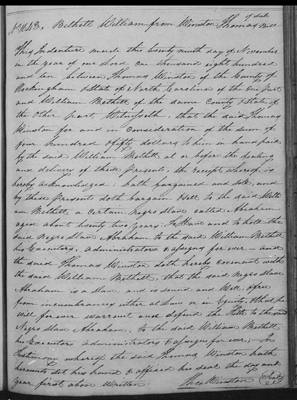 No 1648. Bethell William from Winston Thomas Bill of Sale
This Indenture made this twenty ninth day of November
in the year of our Lord one thousand eight hundred
and ten between Thomas Winston of the County of
Rockingham & State of North Carolina of the one part
and William Bethell of the same County & State of
the other part, Witnesseth, that the said Thomas
Winston for and in Consideration of the sum of
four hundred & fifty dollars to him in hand paid
by the said William Bethell, at or before the sealing
and delivery of these Presents, the receipt whereof is
hereby acknowledged hath bargained and sold, and
by these Presents doth bargain & sell to the said Willi
am Bethell, a certain Negro slave called Abraham
aged about twenty two years, To Have and to hold the
said Negro slave Abraham to the said William Bethell
his Executors, Administrators & assigns for ever and
the said Thomas Winston doth hereby covenant with
the said William Bethell, that the said Negro slave
Abraham is a slave, and is sound and well, & free
from incumbrances either at Law or in Equity, & that he
will for ever warrant and defend the title to the said
Negro Slave Abraham, to the said William Bethell
his Executors Administrators & assigns for ever; In
Testimony whereof the said Thomas Winston hath
hereunto set his hand & affixed his seal the day and
year first above written.
Thos Winston (Seal)